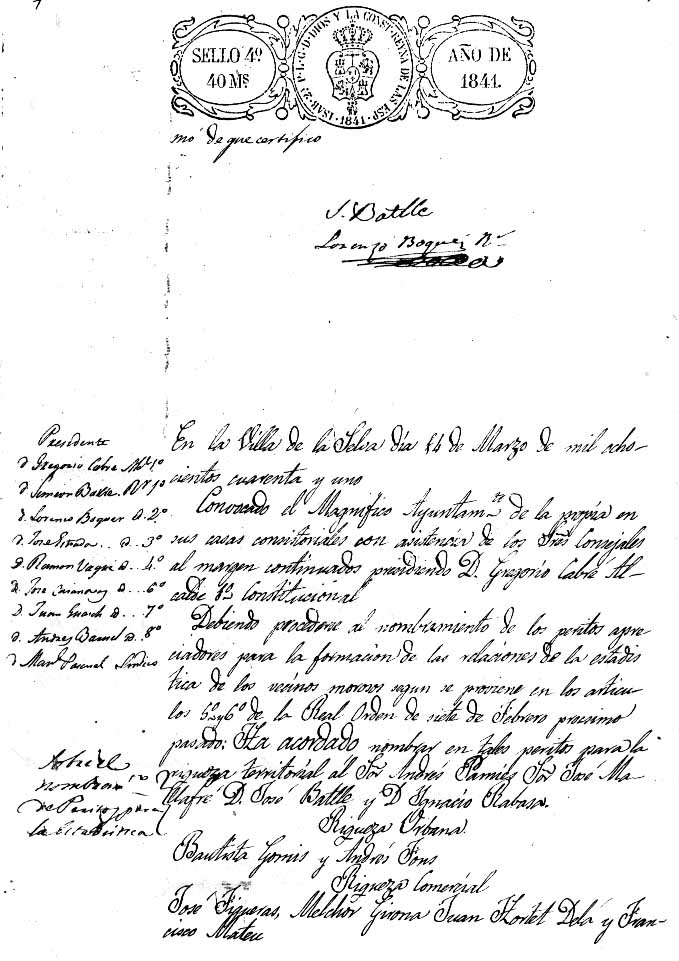 SELLO 4º
40 Mˢ
ISAB. 2ª P. L. G. D. DIOS Y LA CONST. REYNA DE LAS ESP.
1841
AÑO DE
1841.
mó de que certifico
J. Batlle
Lorenzo Boquer Rʳ
Presidente
D Gregorio Cabre Al. 1º
D Simeon Batlle Rʳ 1º
D. Lorenzo Boquer D. 2º
D. Jose D. 3º
D. Ramon D... 4º
D. Jose D... 6º
D. Juan D... 7º
D. Andres D. 8º
D Pascual Sindico
En la Villa de la Selva día 14 de Marzo de mil ocho-
cientos cuarenta y uno
Convocado el Magnifico Ayuntamᵗᵒ de la propia en
sus casas consitoriales con asistencia de los Sres Consejales
al margen continuados presidiendo D. Gregorio Cabré Al-
calde 1º Constitucional
Debiendo procederse al nombramiento de los peritos apre-
ciadores para la formacion de las relaciones de la estadis
tica de los vecinos morosos segun se previene en los articu-
los 5º y 6º de la Real Orden de siete de Febrero procsimo
pasado; Ha acordado nombrar en tales peritos para la
riqueza territorial al Sor Andrés Pamies Sor José Ma-
llafré D. José Batlle y D Ignacio Rabasa.
Riqueza Urbana.
Bautista Gomis y Andrés Fons
Riqueza Comercial
José Figueras, Melchor Girona Juan Hortet Delá y Fran-
cisco Mateu
nombramᵗᵒ
de Peritos para
la Estadistica